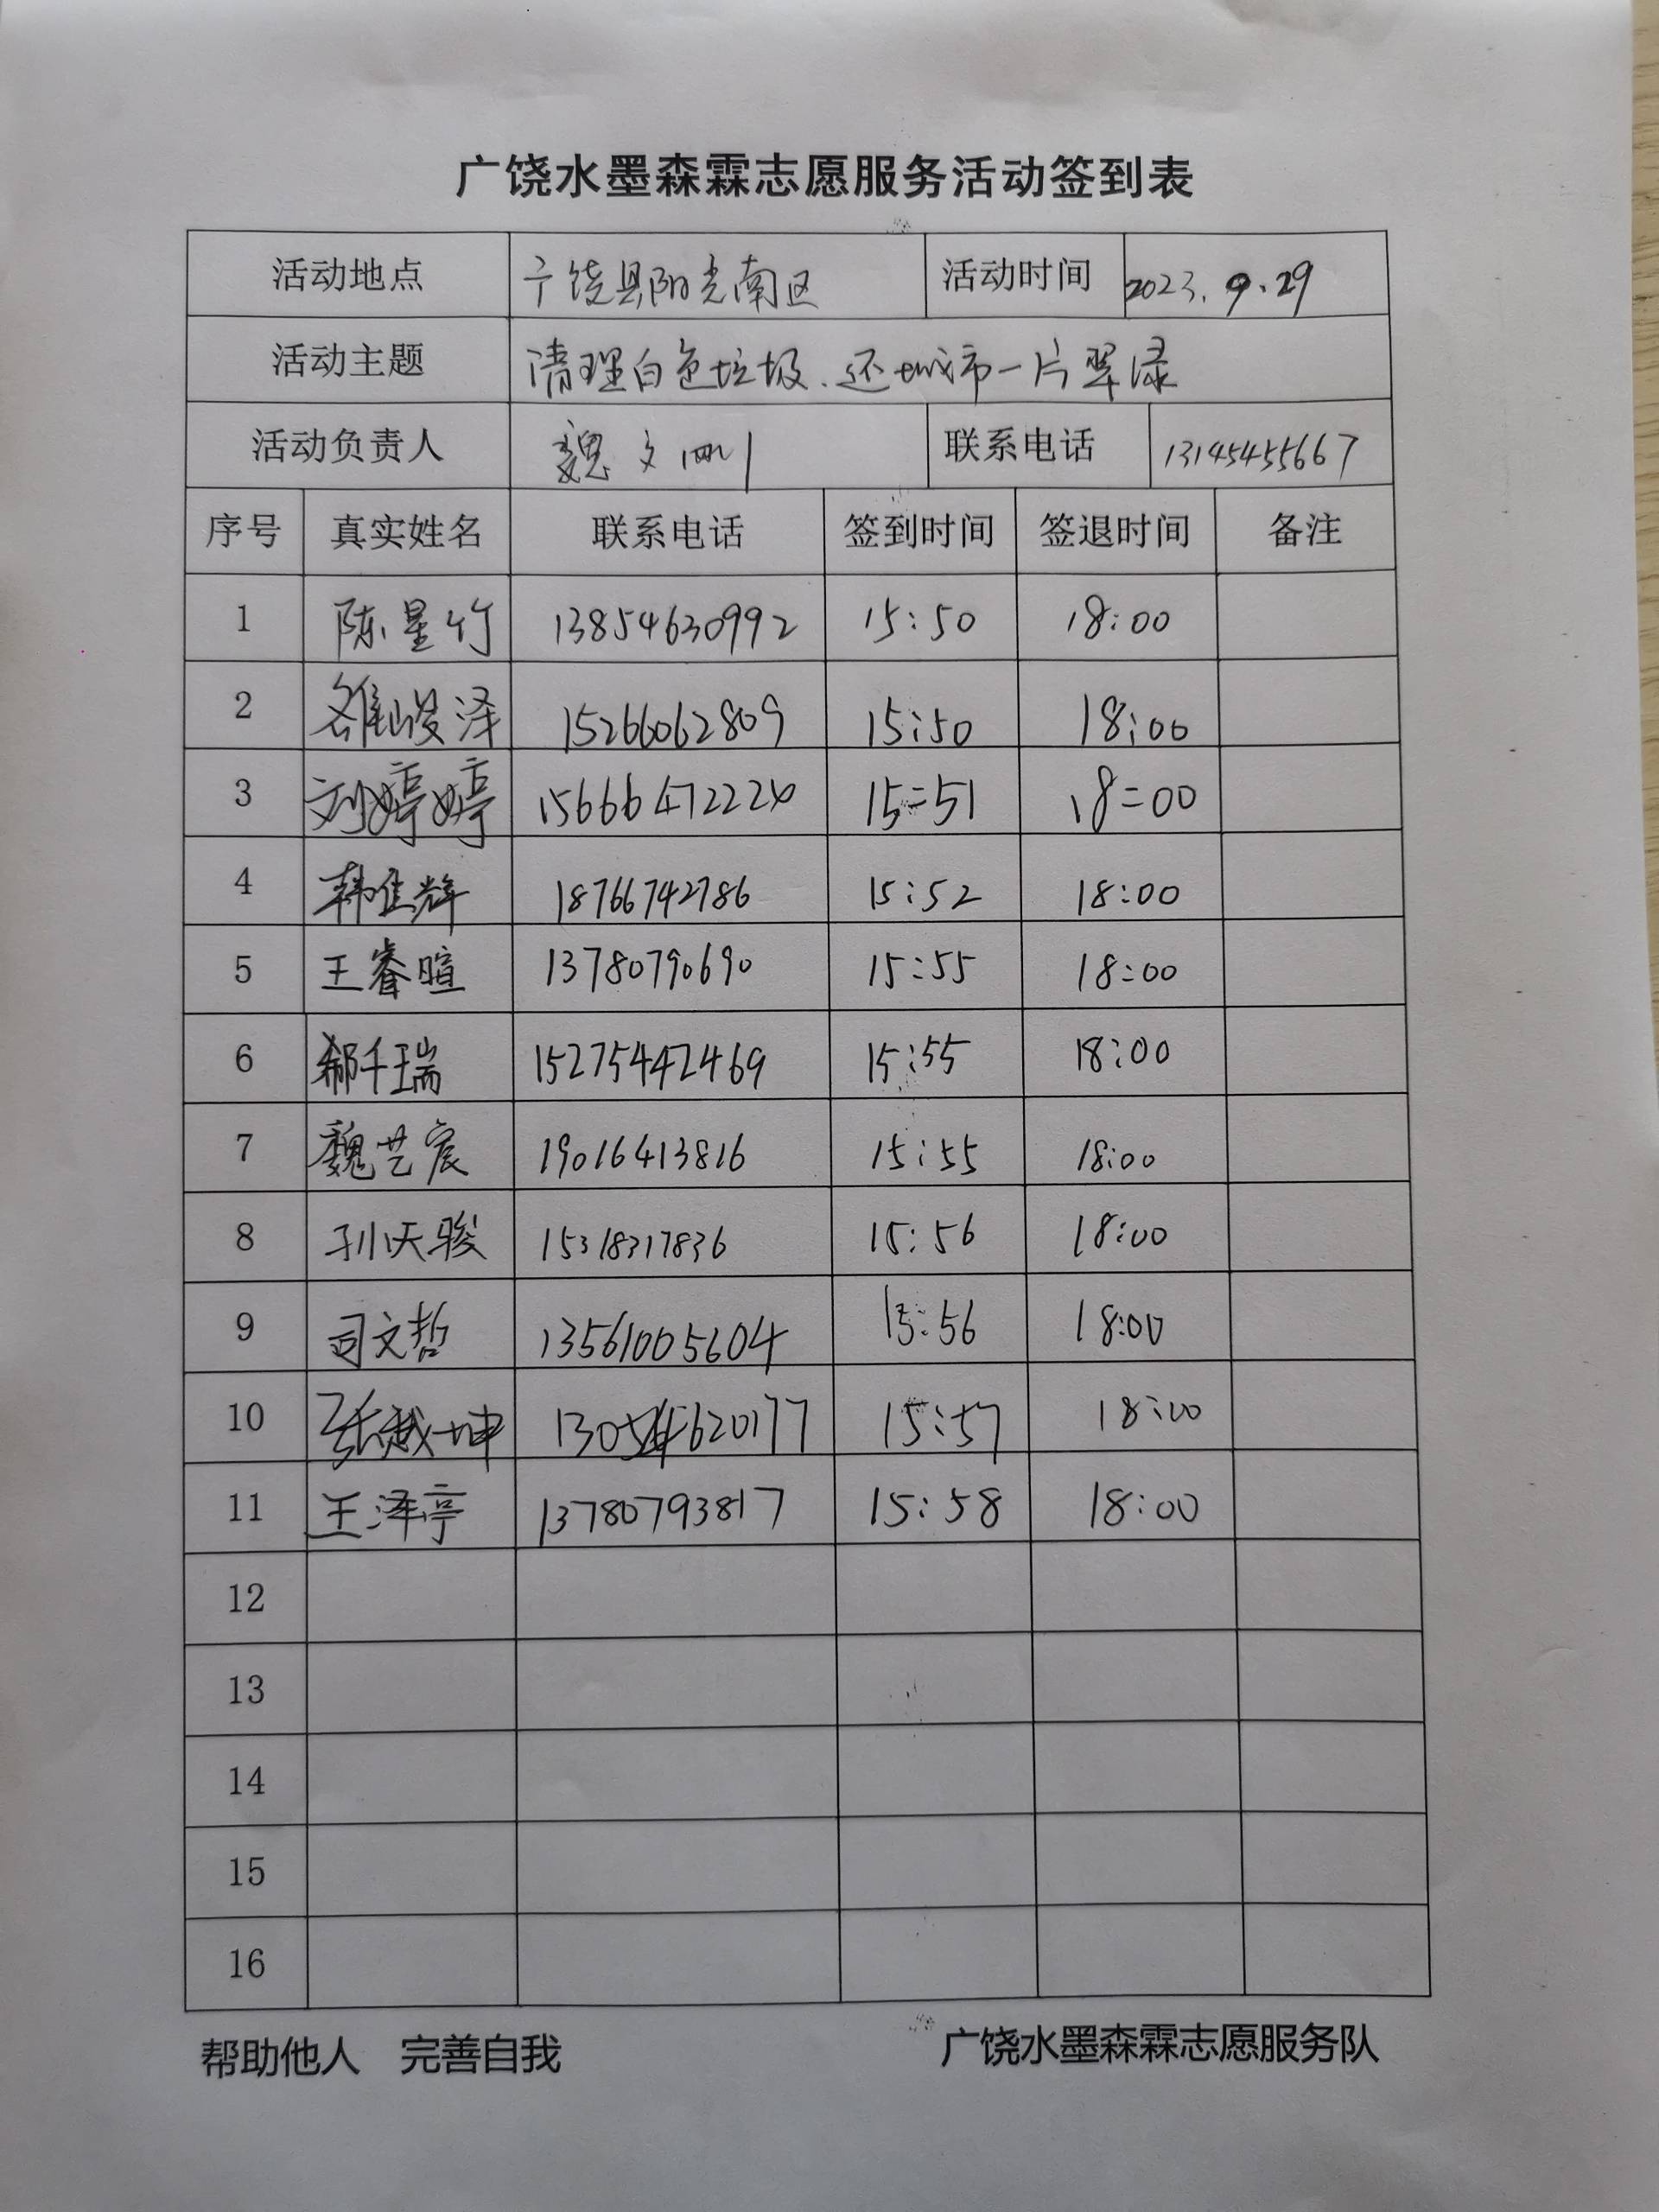 广饶水墨森霖志愿服务活动签到表
活动地点 广饶县阳光南区 活动时间 2023.9.29
活动主题 清理白色垃圾、还城市一片翠绿
活动负责人 魏文 联系电话 13145455667
序号 真实姓名 联系电话 签到时间 签退时间 备注
1 陈星竹 13854630992 15:50 18:00
2 雒峻泽 15266062809 15:50 18:00
3 刘婷婷 15:51 18:00
4 韩佳辉 18766742786 15:52 18:00
5 王睿暄 13780790690 15:55 18:00
6 郗千瑞 15275442469 15:55 18:00
7 魏艺宸 19016413816 15:55 18:00
8 孙天骏 15318317836 15:56 18:00
9 司文哲 13561005604 15:56 18:00
10 张越坤 15:57 18:00
11 王泽亭 13780793817 15:58 18:00
12
13
14
15
16
帮助他人 完善自我 广饶水墨森霖志愿服务队